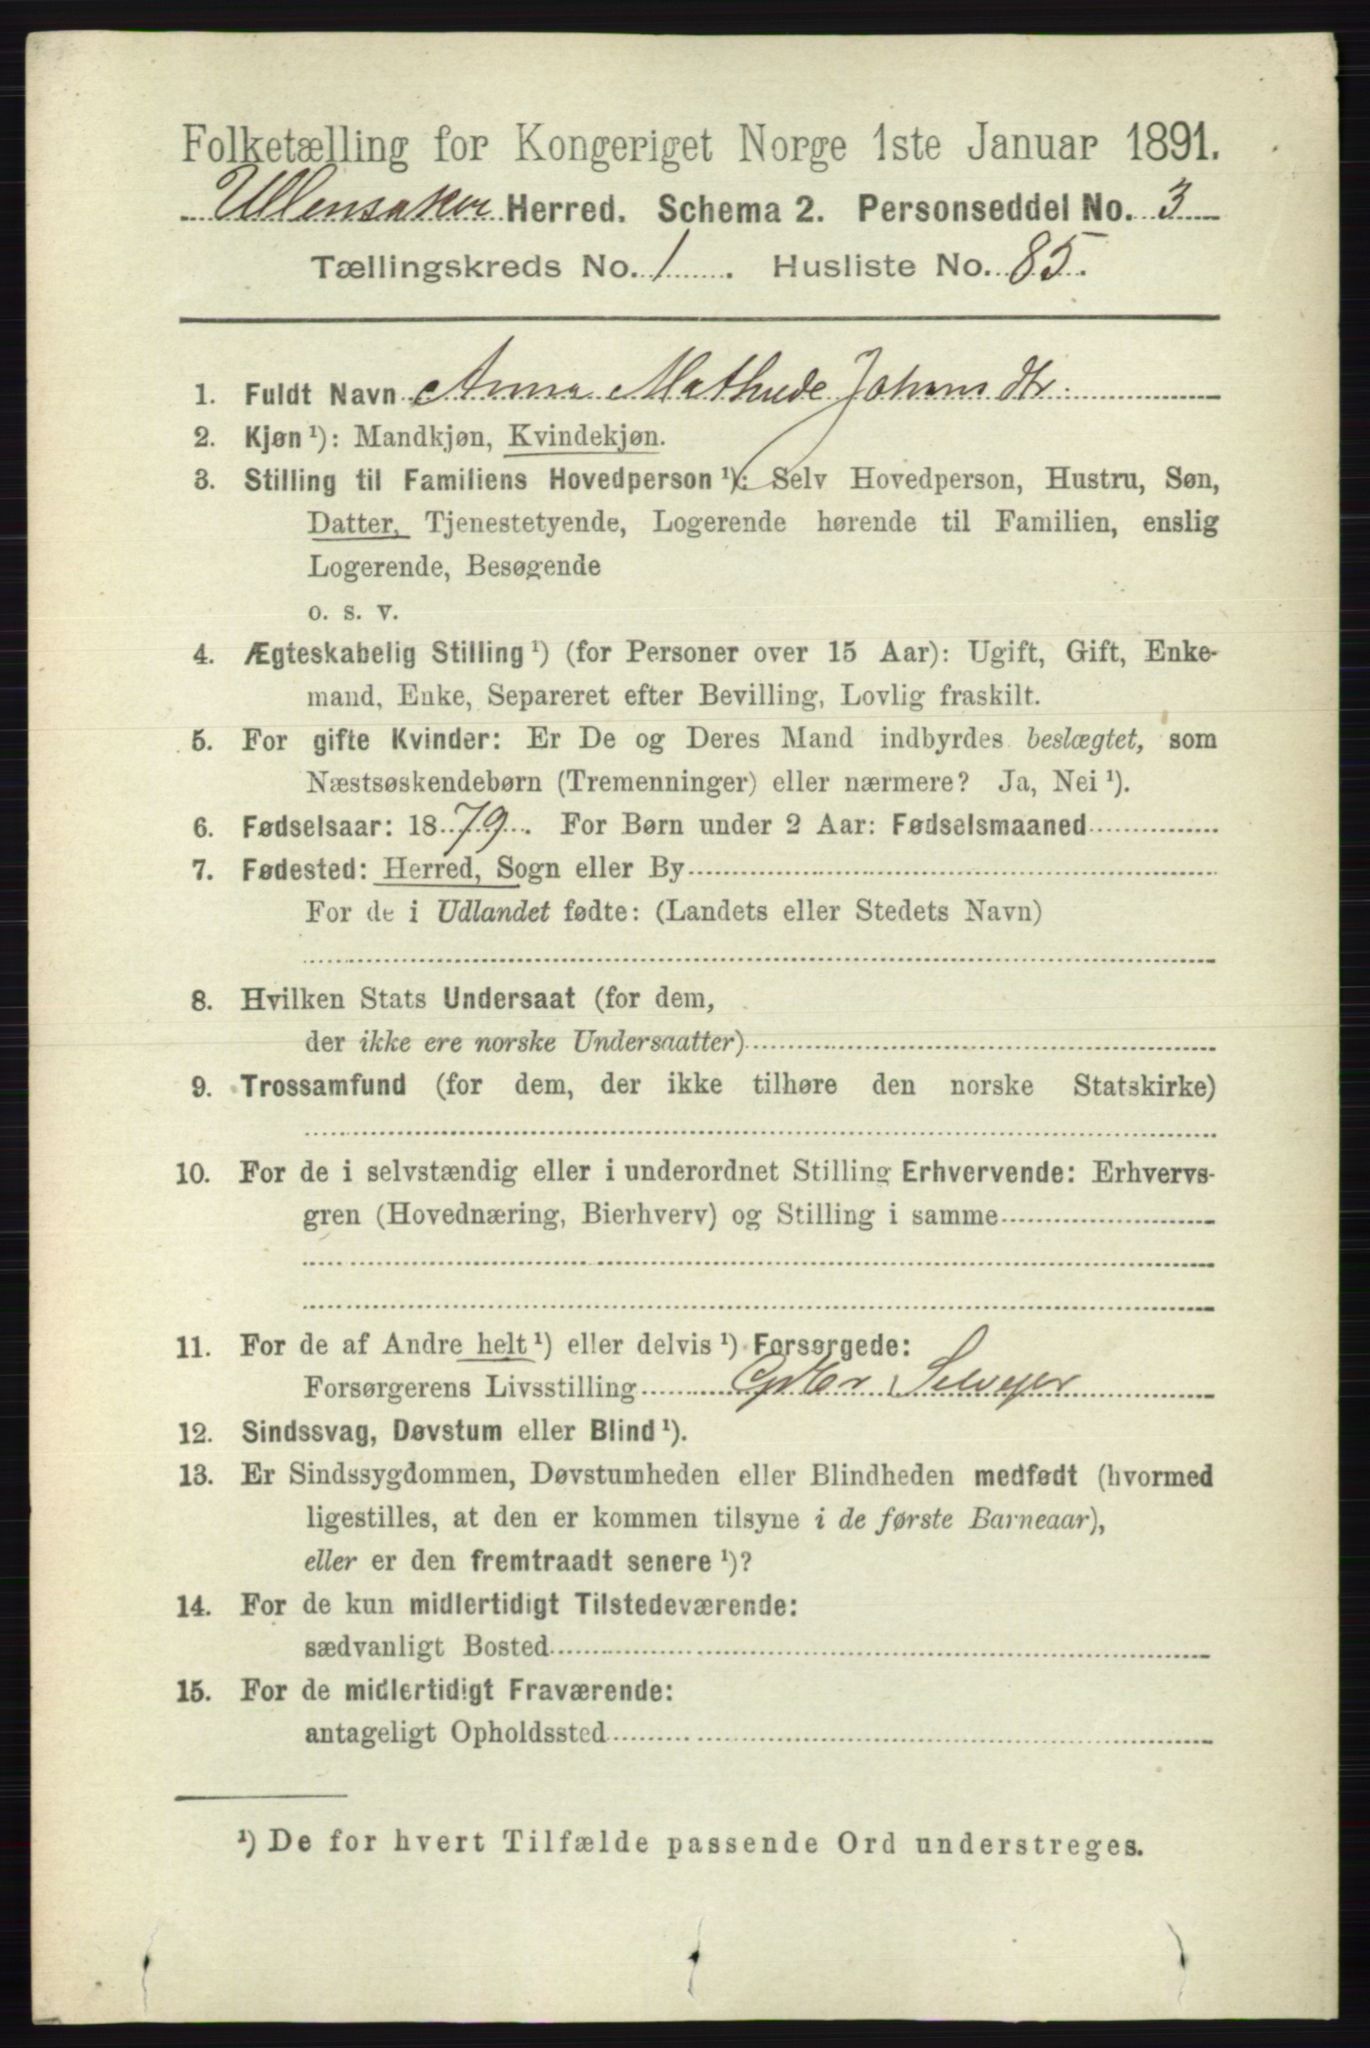 Folketælling for Kongeriget Norge 1ste Januar 1891.
Ullensaker Herred. Schema 2. Personseddel No. 3
Tællingskreds No. 1. Husliste No. 85.
1. Fuldt Navn Anna Mathilde Johansdtr.
2. Kjøn ¹): Mandkjøn, Kvindekjøn.
3. Stilling til Familiens Hovedperson ¹): Selv Hovedperson, Hustru, Søn,
Datter, Tjenestetyende, Logerende hørende til Familien, enslig
Logerende, Besøgende
o. s. v.
4. Ægteskabelig Stilling ¹) (for Personer over 15 Aar): Ugift, Gift, Enke-
mand, Enke, Separeret efter Bevilling, Lovlig fraskilt.
5. For gifte Kvinder: Er De og Deres Mand indbyrdes beslægtet, som
Næstsøskendebørn (Tremenninger) eller nærmere? Ja, Nei ¹).
6. Fødselsaar: 1879. For Børn under 2 Aar: Fødselsmaaned
7. Fødested: Herred, Sogn eller By
For de i Udlandet fødte: (Landets eller Stedets Navn)
8. Hvilken Stats Undersaat (for dem,
der ikke ere norske Undersaatter)
9. Trossamfund (for dem, der ikke tilhøre den norske Statskirke)
10. For de i selvstændig eller i underordnet Stilling Erhvervende: Erhvervs-
gren (Hovednæring, Bierhverv) og Stilling i samme
11. For de af Andre helt ¹) eller delvis ¹) Forsørgede:
Forsørgerens Livsstilling Selvejer
12. Sindssvag, Døvstum eller Blind ¹).
13. Er Sindssygdommen, Døvstumheden eller Blindheden medfødt (hvormed
ligestilles, at den er kommen tilsyne i de første Barneaar),
eller er den fremtraadt senere ¹)?
14. For de kun midlertidigt Tilstedeværende:
sædvanligt Bosted
15. For de midlertidigt Fraværende:
antageligt Opholdssted
¹) De for hvert Tilfælde passende Ord understreges.